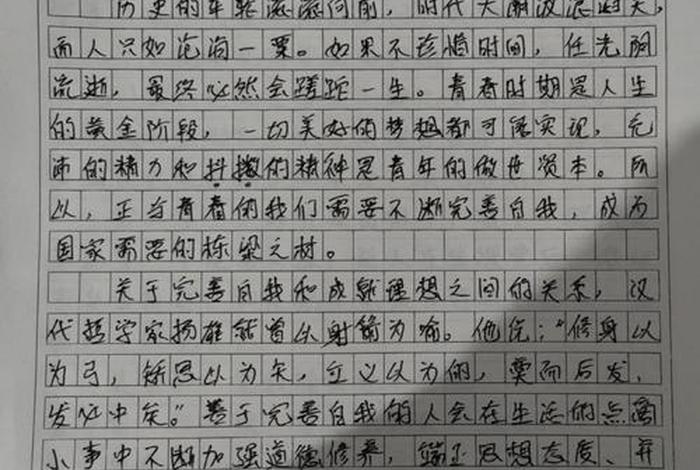 历史的车轮滚滚向前，时代大潮波浪滔天，
而人只如沧海一粟。如果不珍惜时间，任光阴
流逝，最终必然会蹉跎一生。青春时期是人生
的黄金阶段，一切美好的梦想都可能实现，充
沛的精力和抖擞的精神是青年的傲世资本。所
以，正当青春的我们需要不断完善自我，成为
国家需要的栋梁之材。
关于完善自我和成就理想之间的关系，汉
代哲学家扬雄就曾以射箭为喻。他说：“修身以
为弓，矫思以为矢，立义以为的，奠而后发，
发必中矣。”善于完善自我的人会在生活的点滴
小事中不断加强道德修养，端正思想态度、并